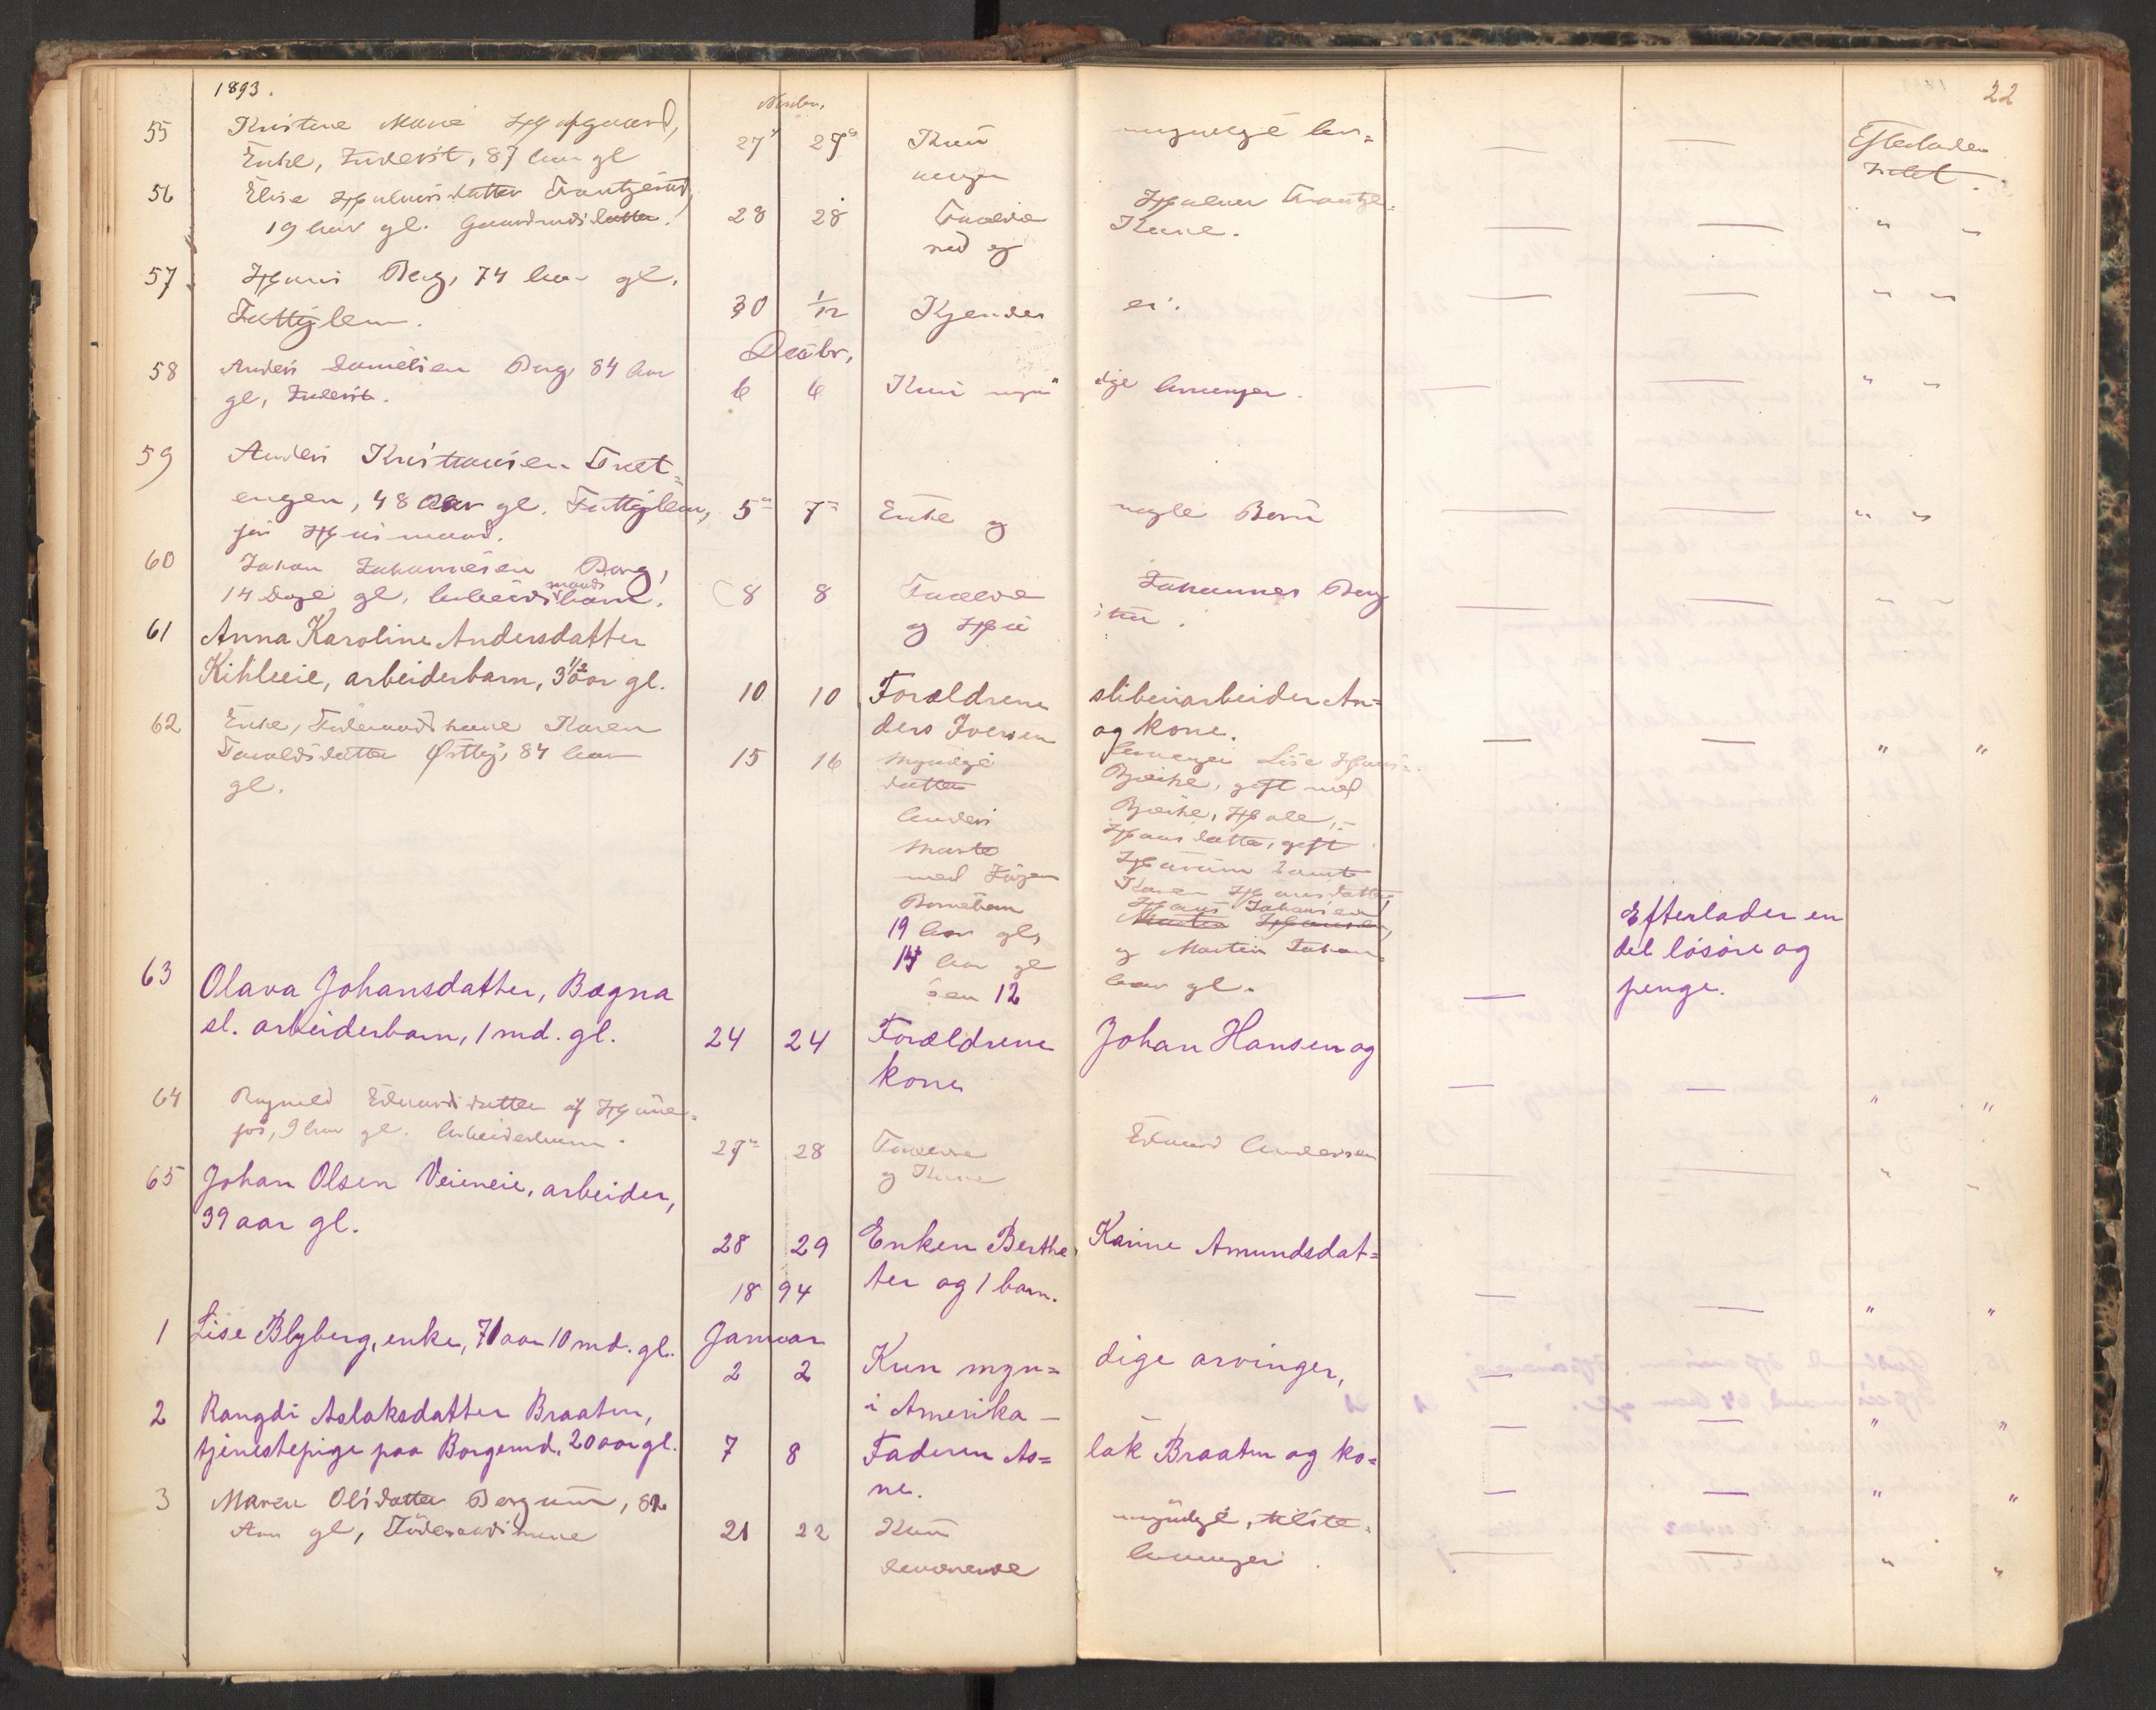 1893.
22
55 Kristine Marie
Enke, Inderst, 87 Aar gl 27 27 Kun myndige Ar=
vinger
Efterlader
Intet.
56 Elise Hjalmarsdatter Frantzerud,
19 Aar gl. Gaardmandsdatter. 28 28 Forældre Hjalmar Frantze=
rud og Kone. — — " "
57 Hans Berg, 74 Aar gl.
Fattiglem. 30 1/12 Kjendes ei. — — " "
Decbr.
58 Anders Danielsen Berg, 84 Aar
gl, Inderst. 6 6 Kun myn= dige Arvinger. — — " "
59 Anders Kristiansen
engen, 48 Aar gl. Fattiglem, 5 7 Enke og nogle Børn — — " "
før Husmand.
60 Johan Johannesen Berg,
14 Dage gl, Arbeidsmandsbarn. 8 8 Forældre Johannes Berg — — " "
og Hustru.
61 Anna Karoline Andersdatter
Kihleeie, arbeiderbarn, 3 1/2 aar gl. 10 10 Forældrene sliberiarbeider An=
ders Iversen og kone. — — " "
62 Enke, Føderaadskone Karen
Østby, 84 Aar 15 16 Myndige Arvinger Lise Hans=
gl. datter Bjerke, gift med
Anders Bjerke, Hole,
Marte Hansdatter, gift
med
Børnebørn Karen Hansdatter
19 Aar gl, Hans Johansen
14 Aar gl og Martin Johan=
sen 12 Aar gl. — Efterlader en
del løsøre og
penge.
63 Olava Johansdatter, Bægna
sl. arbeiderbarn, 1 md. gl. 24 24 Forældrene Johan Hansen og
kone — — " "
64 Ragnild Edvardsdatter af Høne=
fos, 9 Aar gl. Arbeiderbarn. 27 28 Forældre Edvard Andersen
og Kone — — " "
65 Johan Olsen Veieneie, arbeider,
39 aar gl. 28 29 Enken Berthe Karine Amundsdat=
ter og 1 barn. — — " "
1894
Januar
1 Lise Blyberg, enke, 71 aar 10 md. gl. 2 2 Kun myn= dige arvinger,
i Amerika — — — " "
2 Rangdi Aslaksdatter Braaten,
tjenestepige paa Borgerud, 20 aar gl. 7 8 Faderen As= lak Braaten og ko=
ne. — — " "
3 Maren Olsdatter Bergsund, 82
Aar gl, Føderaadskone 21 22 Kun myndige, tilste=
deværende Arvinger. — — " "